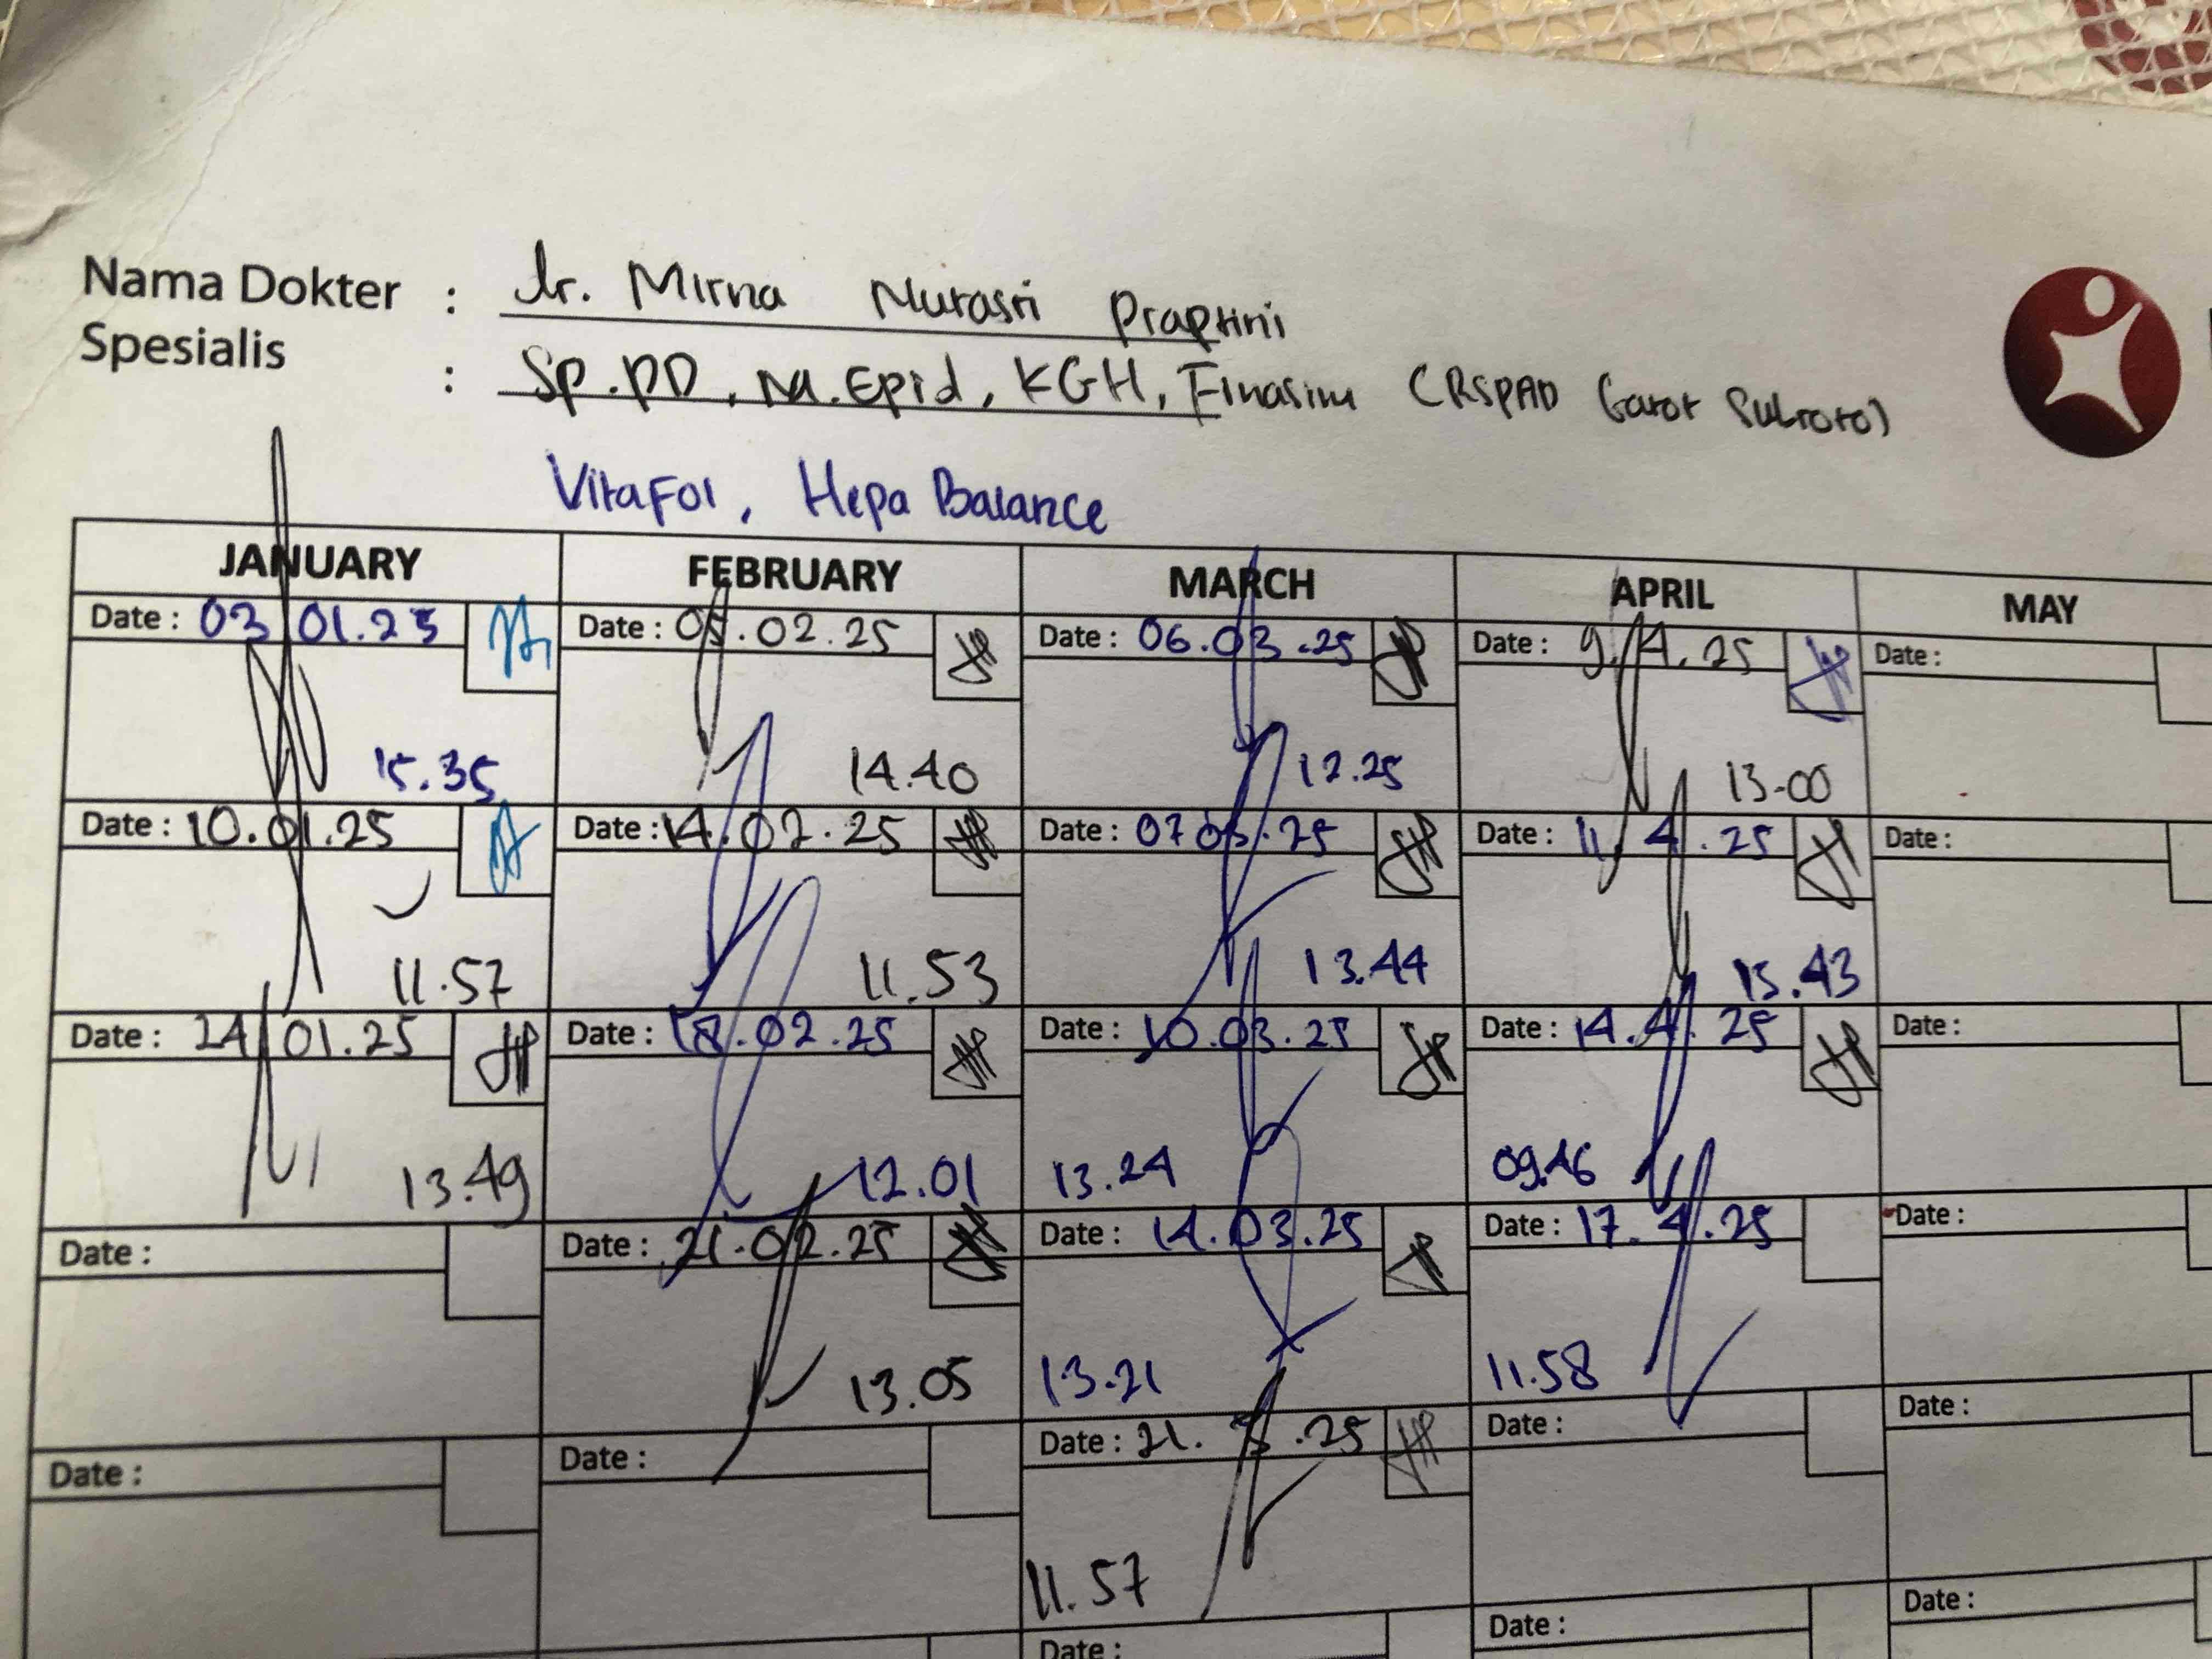 Nama Dokter : dr. Mirna Nurasri Praptini
Spesialis : Sp.PD, M.Epid, KGH, Finasim (RSPAD Gatot Subroto)
VitaFol, Hepa Balance
JANUARY FEBRUARY MARCH APRIL MAY
Date : 03 01.25 Date : 05.02.25 Date : 06.03.25 Date : 9.4.25 Date :
15.35 14.40 12.25 13.00
Date : 10.01.25 Date : 14.02.25 Date : 07 03.25 Date : 11.4.25 Date :
11.57 11.53 13.44 15.43
Date : 24 01.25 Date : 18.02.25 Date : 10.03.25 Date : 14.4.25 Date :
13.49 12.01 13.24 09.46
Date : Date : 21.02.25 Date : 14.03.25 Date : 17.4.25 Date :
13.05 13.21 11.58
Date : Date : Date : 21.3.25 Date : Date :
11.57
Date : Date : Date :